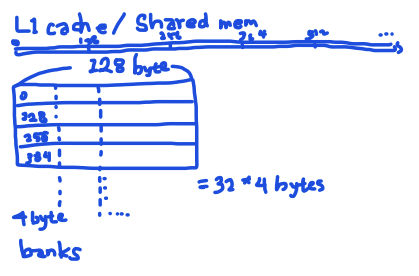 L1 cache / Shared mem
0 128 256 384 512 ...
128 byte
0
128
256
384
= 32 * 4 bytes
4 byte ....
banks